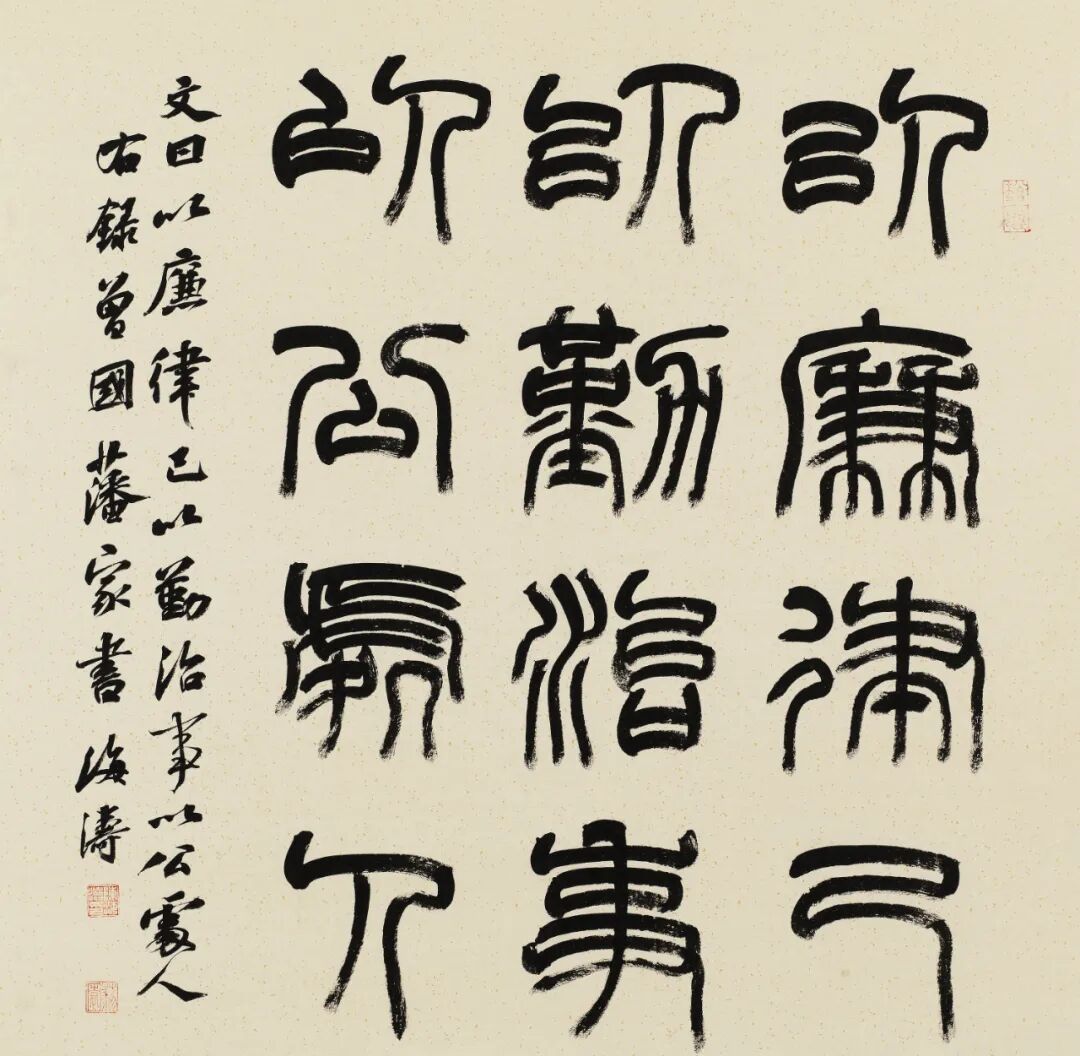 以廉律己
以勤治事
以公處人
文曰以廉律己以勤治事以公處人
右錄曾國藩家書 海濤